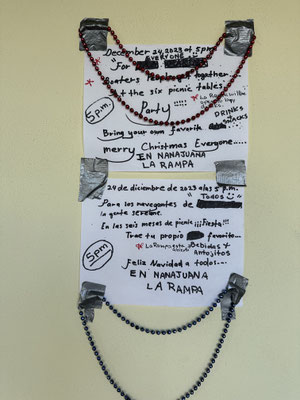 December 24, 2023 at 5 p.m.
EVERYONE
"For
Boaters People get together
at the six picnic tables.
5 p.m.
Party !!!!
* La Rampa will be
DRINKS
SNACKS
Bring your own favorite
merry Christmas Everyone....
EN NANAJUANA
LA RAMPA
24 de diciembre de 2023 a las 5 P.M.
"Todos"
Para los navegantes de
la gente se reúne.
En las seis mesas de picnic ¡¡¡Fiesta!!!
5pm
Trae tu propio favorito...
* La Rampa esta
Bebidas y
Antojitos
Feliz Navidad a todos...
EN NANAJUANA
LA RAMPA